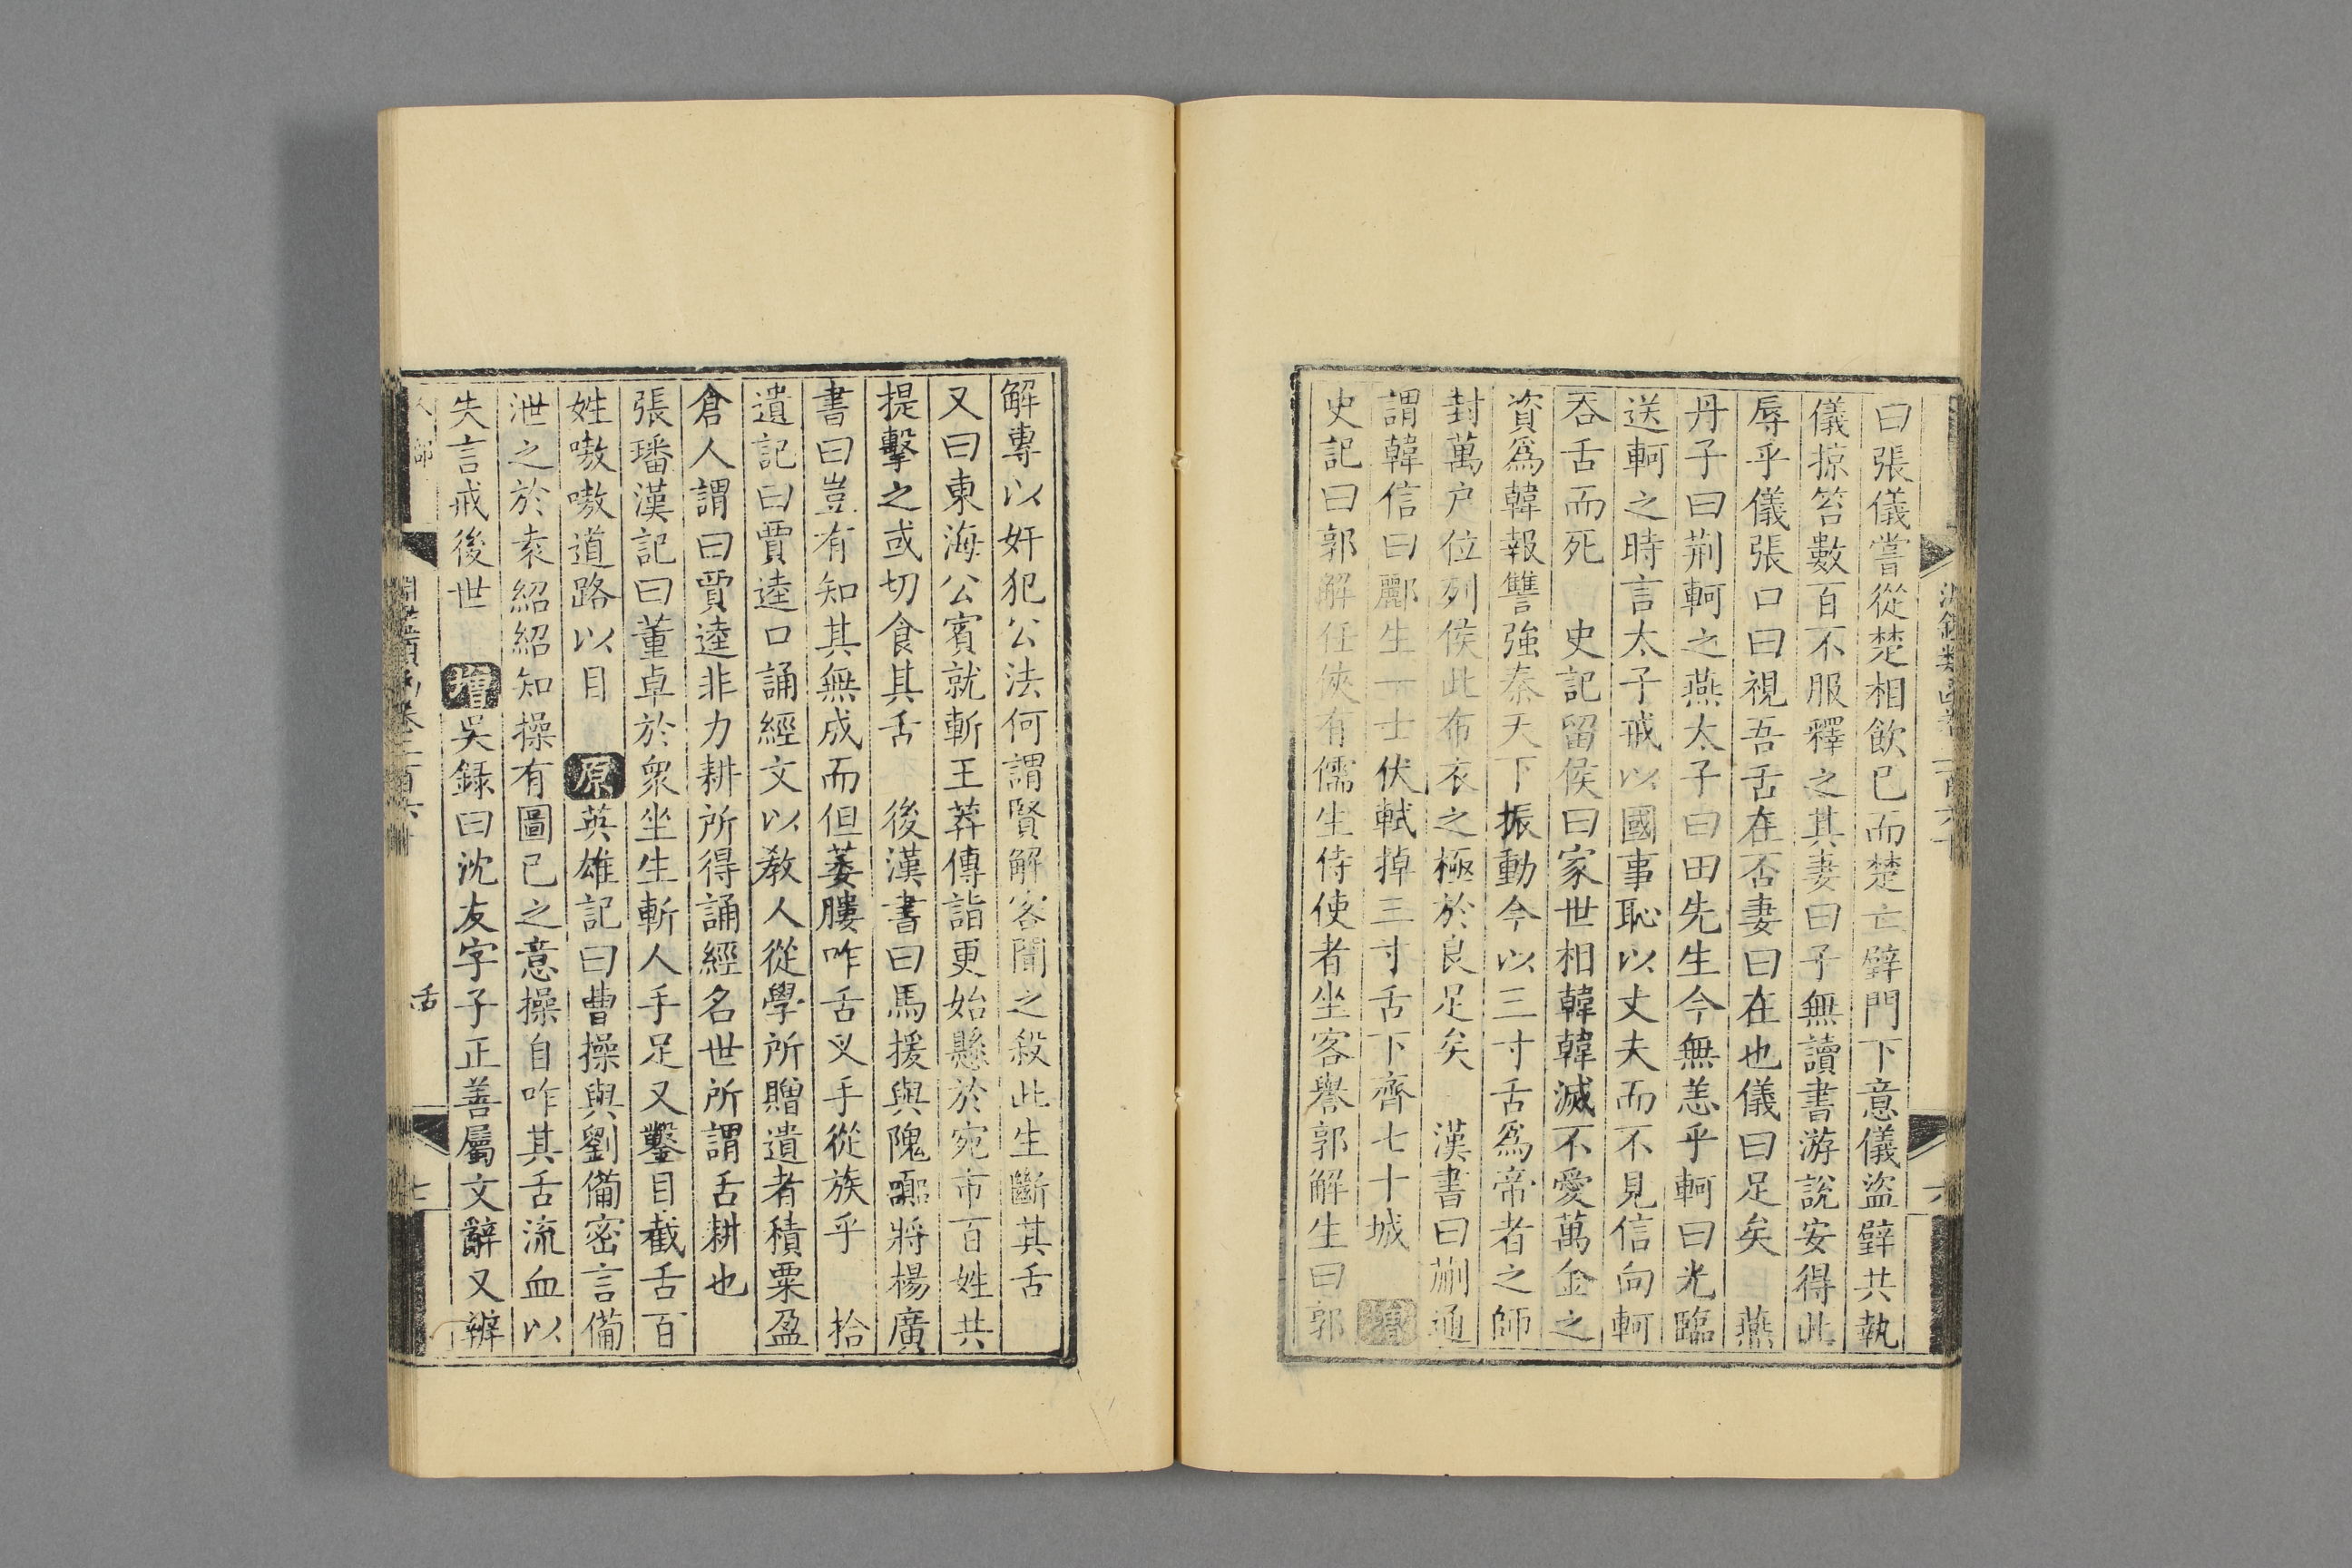 曰張儀嘗從楚相飲已而楚亡璧門下意儀盜璧共執
儀掠笞數百不服釋之其妻曰子無讀書游說安得此
辱乎儀張口曰視吾舌在否妻曰在也儀曰足矣 燕
丹子曰荆軻之燕太子曰田先生今無恙乎軻曰光臨
送軻之時言太子戒以國事恥以丈夫而不見信向軻
吞舌而死 史記留侯曰家世相韓韓滅不愛萬金之
資爲韓報讐強秦天下振動今以三寸舌爲帝者之師
封萬户位列侯此布衣之極於良足矣 漢書曰蒯通
謂韓信曰酈生一士伏軾掉三寸舌下齊七十城 增
史記曰郭解任俠有儒生侍使者坐客譽郭解生曰郭
解專以奸犯公法何謂賢解客聞之殺此生斷其舌
又曰東海公賓就斬王莽傳詣更始懸於宛市百姓共
提擊之或切食其舌 後漢書曰馬援與隗囂將楊廣
書曰豈有知其無成而但萎腰咋舌叉手從族乎 拾
遺記曰賈逵口誦經文以教人從學所贈遺者積粟盈
倉人謂曰賈逵非力耕所得誦經名世所謂舌耕也
張璠漢記曰董卓於衆坐生斬人手足又鑿目截舌百
姓嗷嗷道路以目 原英雄記曰曹操與劉備密言備
泄之於袁紹紹知操有圖己之意操自咋其舌流血以
失言戒後世 增吳録曰沈友字子正善屬文辭又辦
人部 淵鑑類函卷二百六十 舌 七